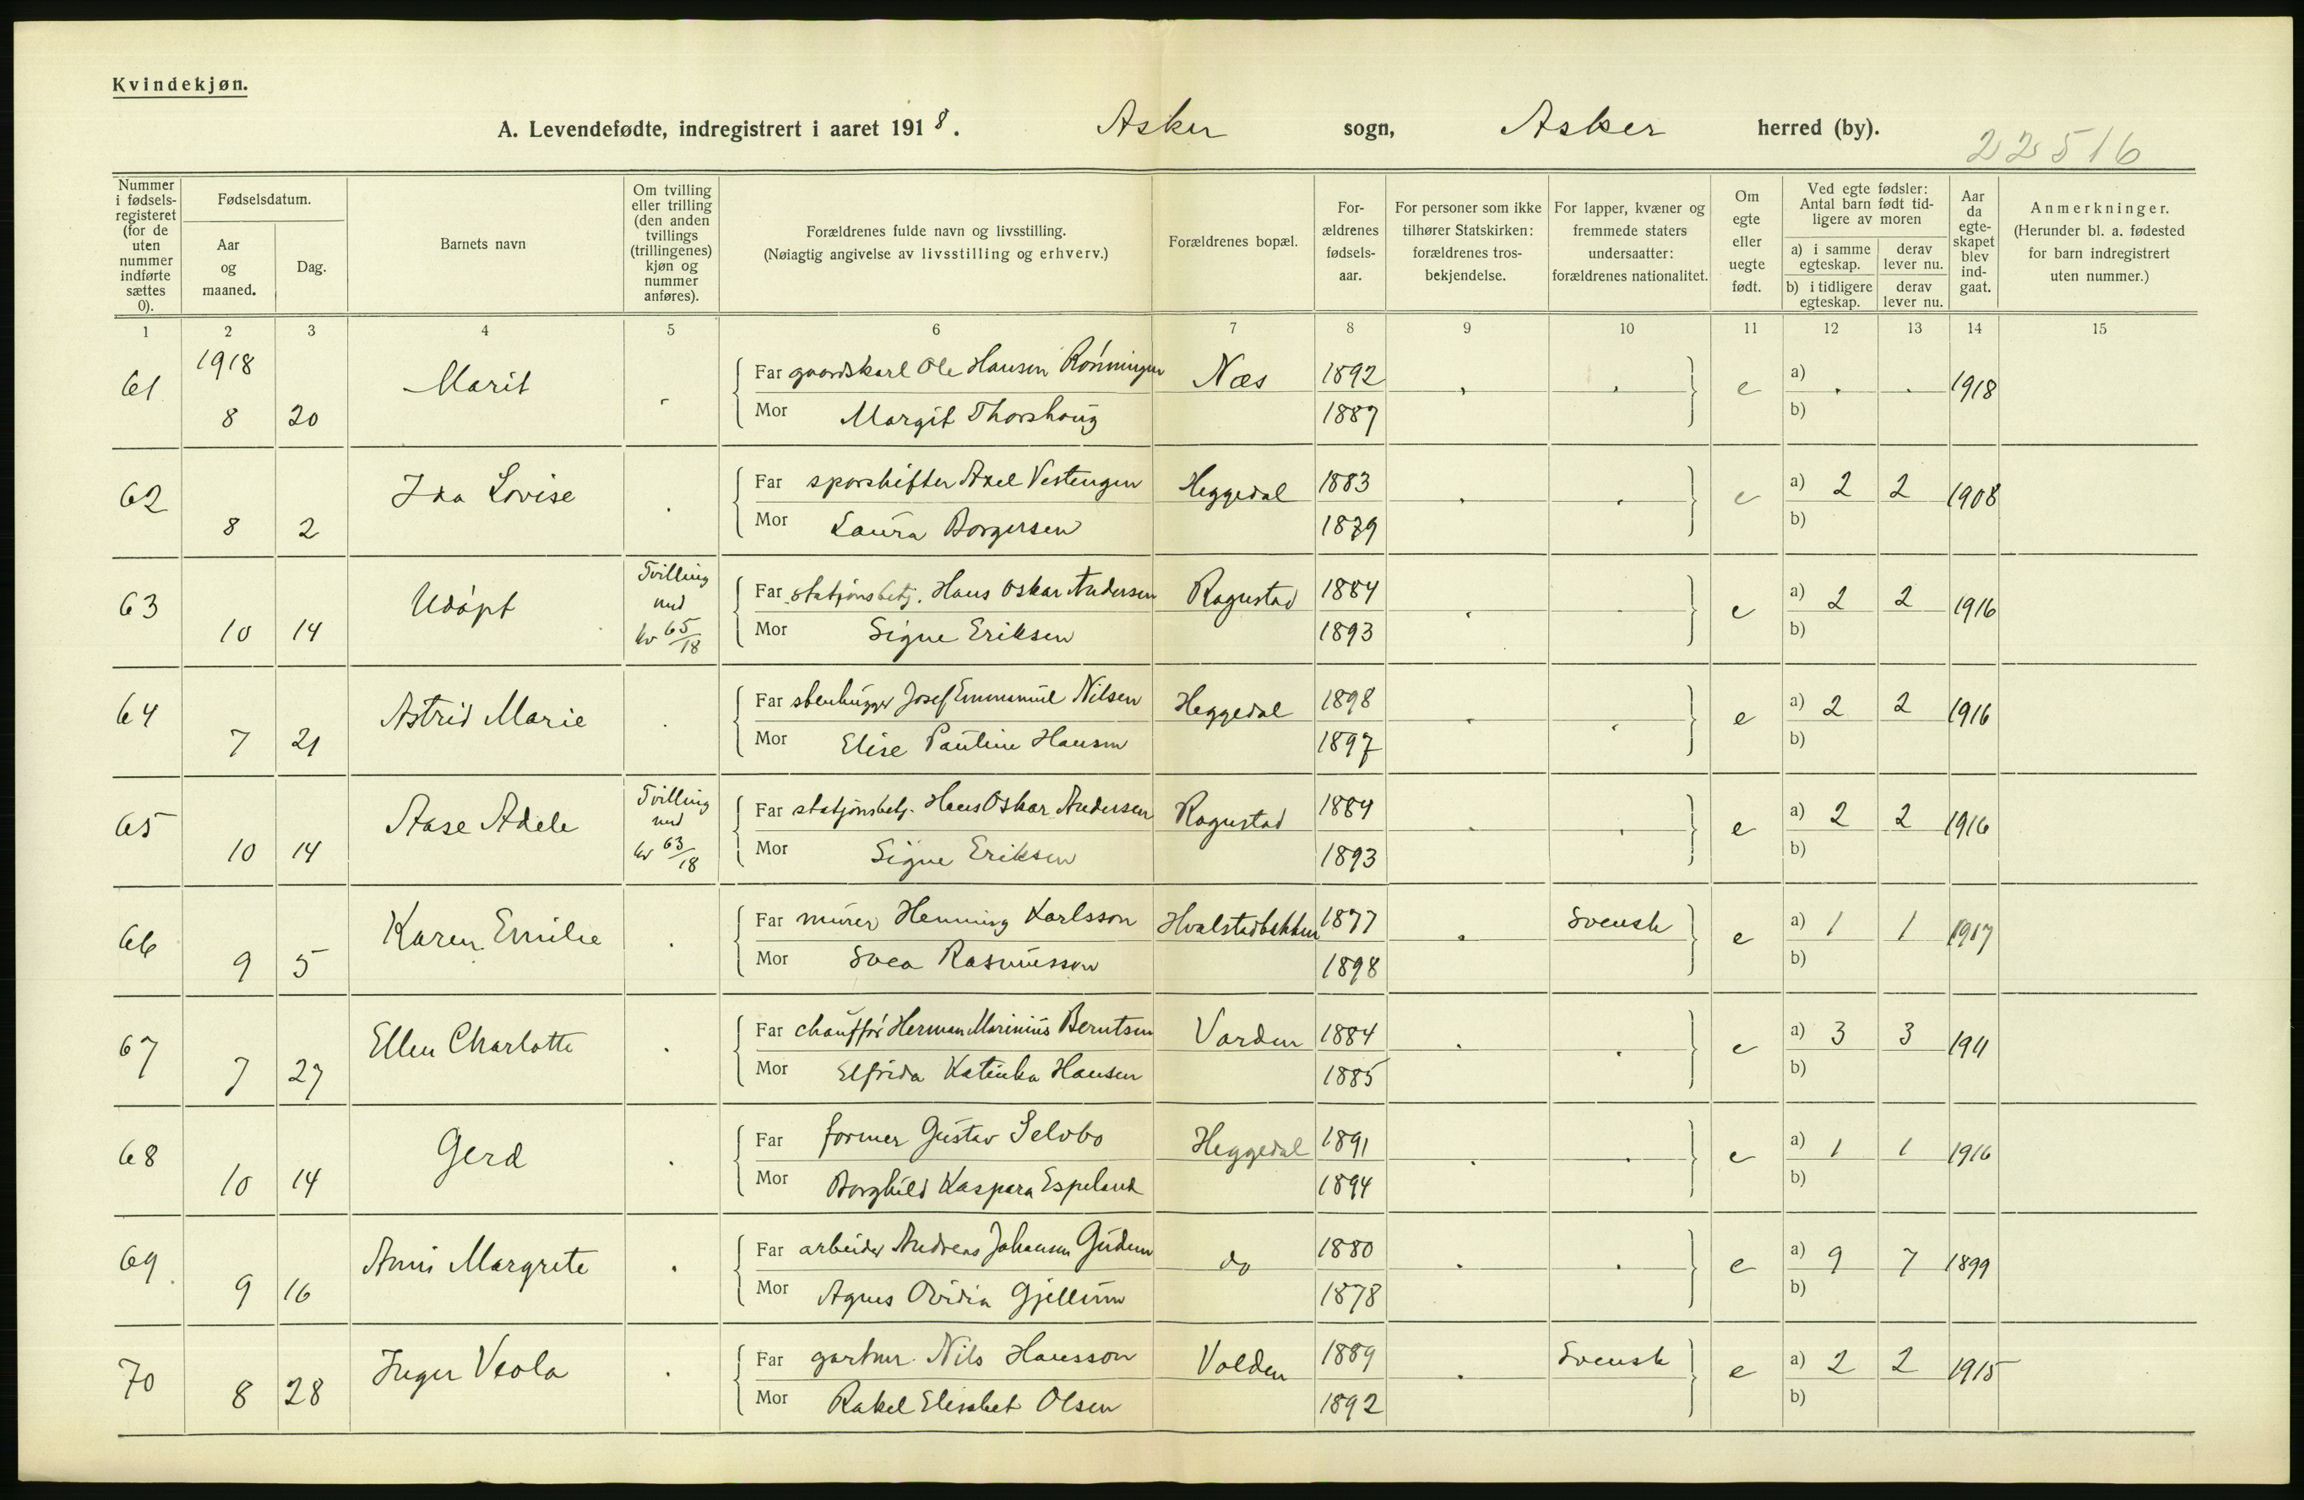 Kvindekjøn.
A. Levendefødte, indregistrert i aaret 1918. Asker sogn, Asker herred (by).
22516
Nummer i fødsels-registeret (for de uten nummer indførte sættes 0).
Fødselsdatum.
Aar og maaned.
Dag.
Barnets navn
Om tvilling eller trilling (den anden tvillings (trillingenes) kjøn og nummer anføres).
Forældrenes fulde navn og livsstilling.
(Nøiagtig angivelse av livsstilling og erhverv.)
Forældrenes bopæl.
For-ældrenes fødsels-aar.
For personer som ikke tilhører Statskirken: forældrenes tros-bekjendelse.
For lapper, kvæner og fremmede staters undersaatter: forældrenes nationalitet.
Om egte eller uegte født.
Ved egte fødsler: Antal barn født tid-ligere av moren
a) i samme egteskap.
derav lever nu.
b) i tidligere egteskap.
derav lever nu.
Aar da egte-skapet blev ind-gaat.
Anmerkninger.
(Herunder bl. a. fødested for barn indregistrert uten nummer.)
1 2 3 4 5 6 7 8 9 10 11 12 13 14 15
1918
61 8 20 Marit . Far gaardskarl Ole Hansen Rønningen Næs 1892 . . e a) . . 1918
Mor Margit Thorshaug 1887 b)
62 8 2 Ida Lovise . Far sporskifter Axel Vestengen Heggedal 1883 . . e a) 2 2 1908
Mor Laura Borgersen 1879 b)
63 10 14 Udøpt Tvilling med kv 65/18 Far statjonsbetj. Hans Oskar Andersen Rogustad 1884 . . e a) 2 2 1916
Mor Signe Eriksen 1893 b)
64 7 21 Astrid Marie . Far stenhugger Josef Emmanuel Nilsen Heggedal 1898 . . e a) 2 2 1916
Mor Elise Pauline Hansen 1897 b)
65 10 14 Aase Adele Tvilling med kv 63/18 Far statjonsbetj. Hans Oskar Andersen Rogustad 1884 . . e a) 2 2 1916
Mor Signe Eriksen 1893 b)
66 9 5 Karen Emilie . Far murer Henning Karlsson Hvalstadbakken 1877 . Svensk e a) 1 1 1917
Mor Svea Rasmusson 1898 b)
67 7 27 Ellen Charlotte . Far chauffør Herman Marinius Berntsen Varden 1884 . . e a) 3 3 1911
Mor Elfrida Katinka Hansen 1885 b)
68 10 14 Gerd . Far former Gustav Selvbo Heggedal 1891 . . e a) 1 1 1916
Mor Borghild Kaspara Espeland 1894 b)
69 9 16 Anni Margrete . Far arbeider Andreas Johansen Gudem do 1880 . . e a) 9 7 1899
Mor Agnes Ovidia Gjellum 1878 b)
70 8 28 Inger Veola . Far gartner Nils Hansson Volden 1889 . Svensk e a) 2 2 1915
Mor Rakel Elisabet Olsen 1892 b)